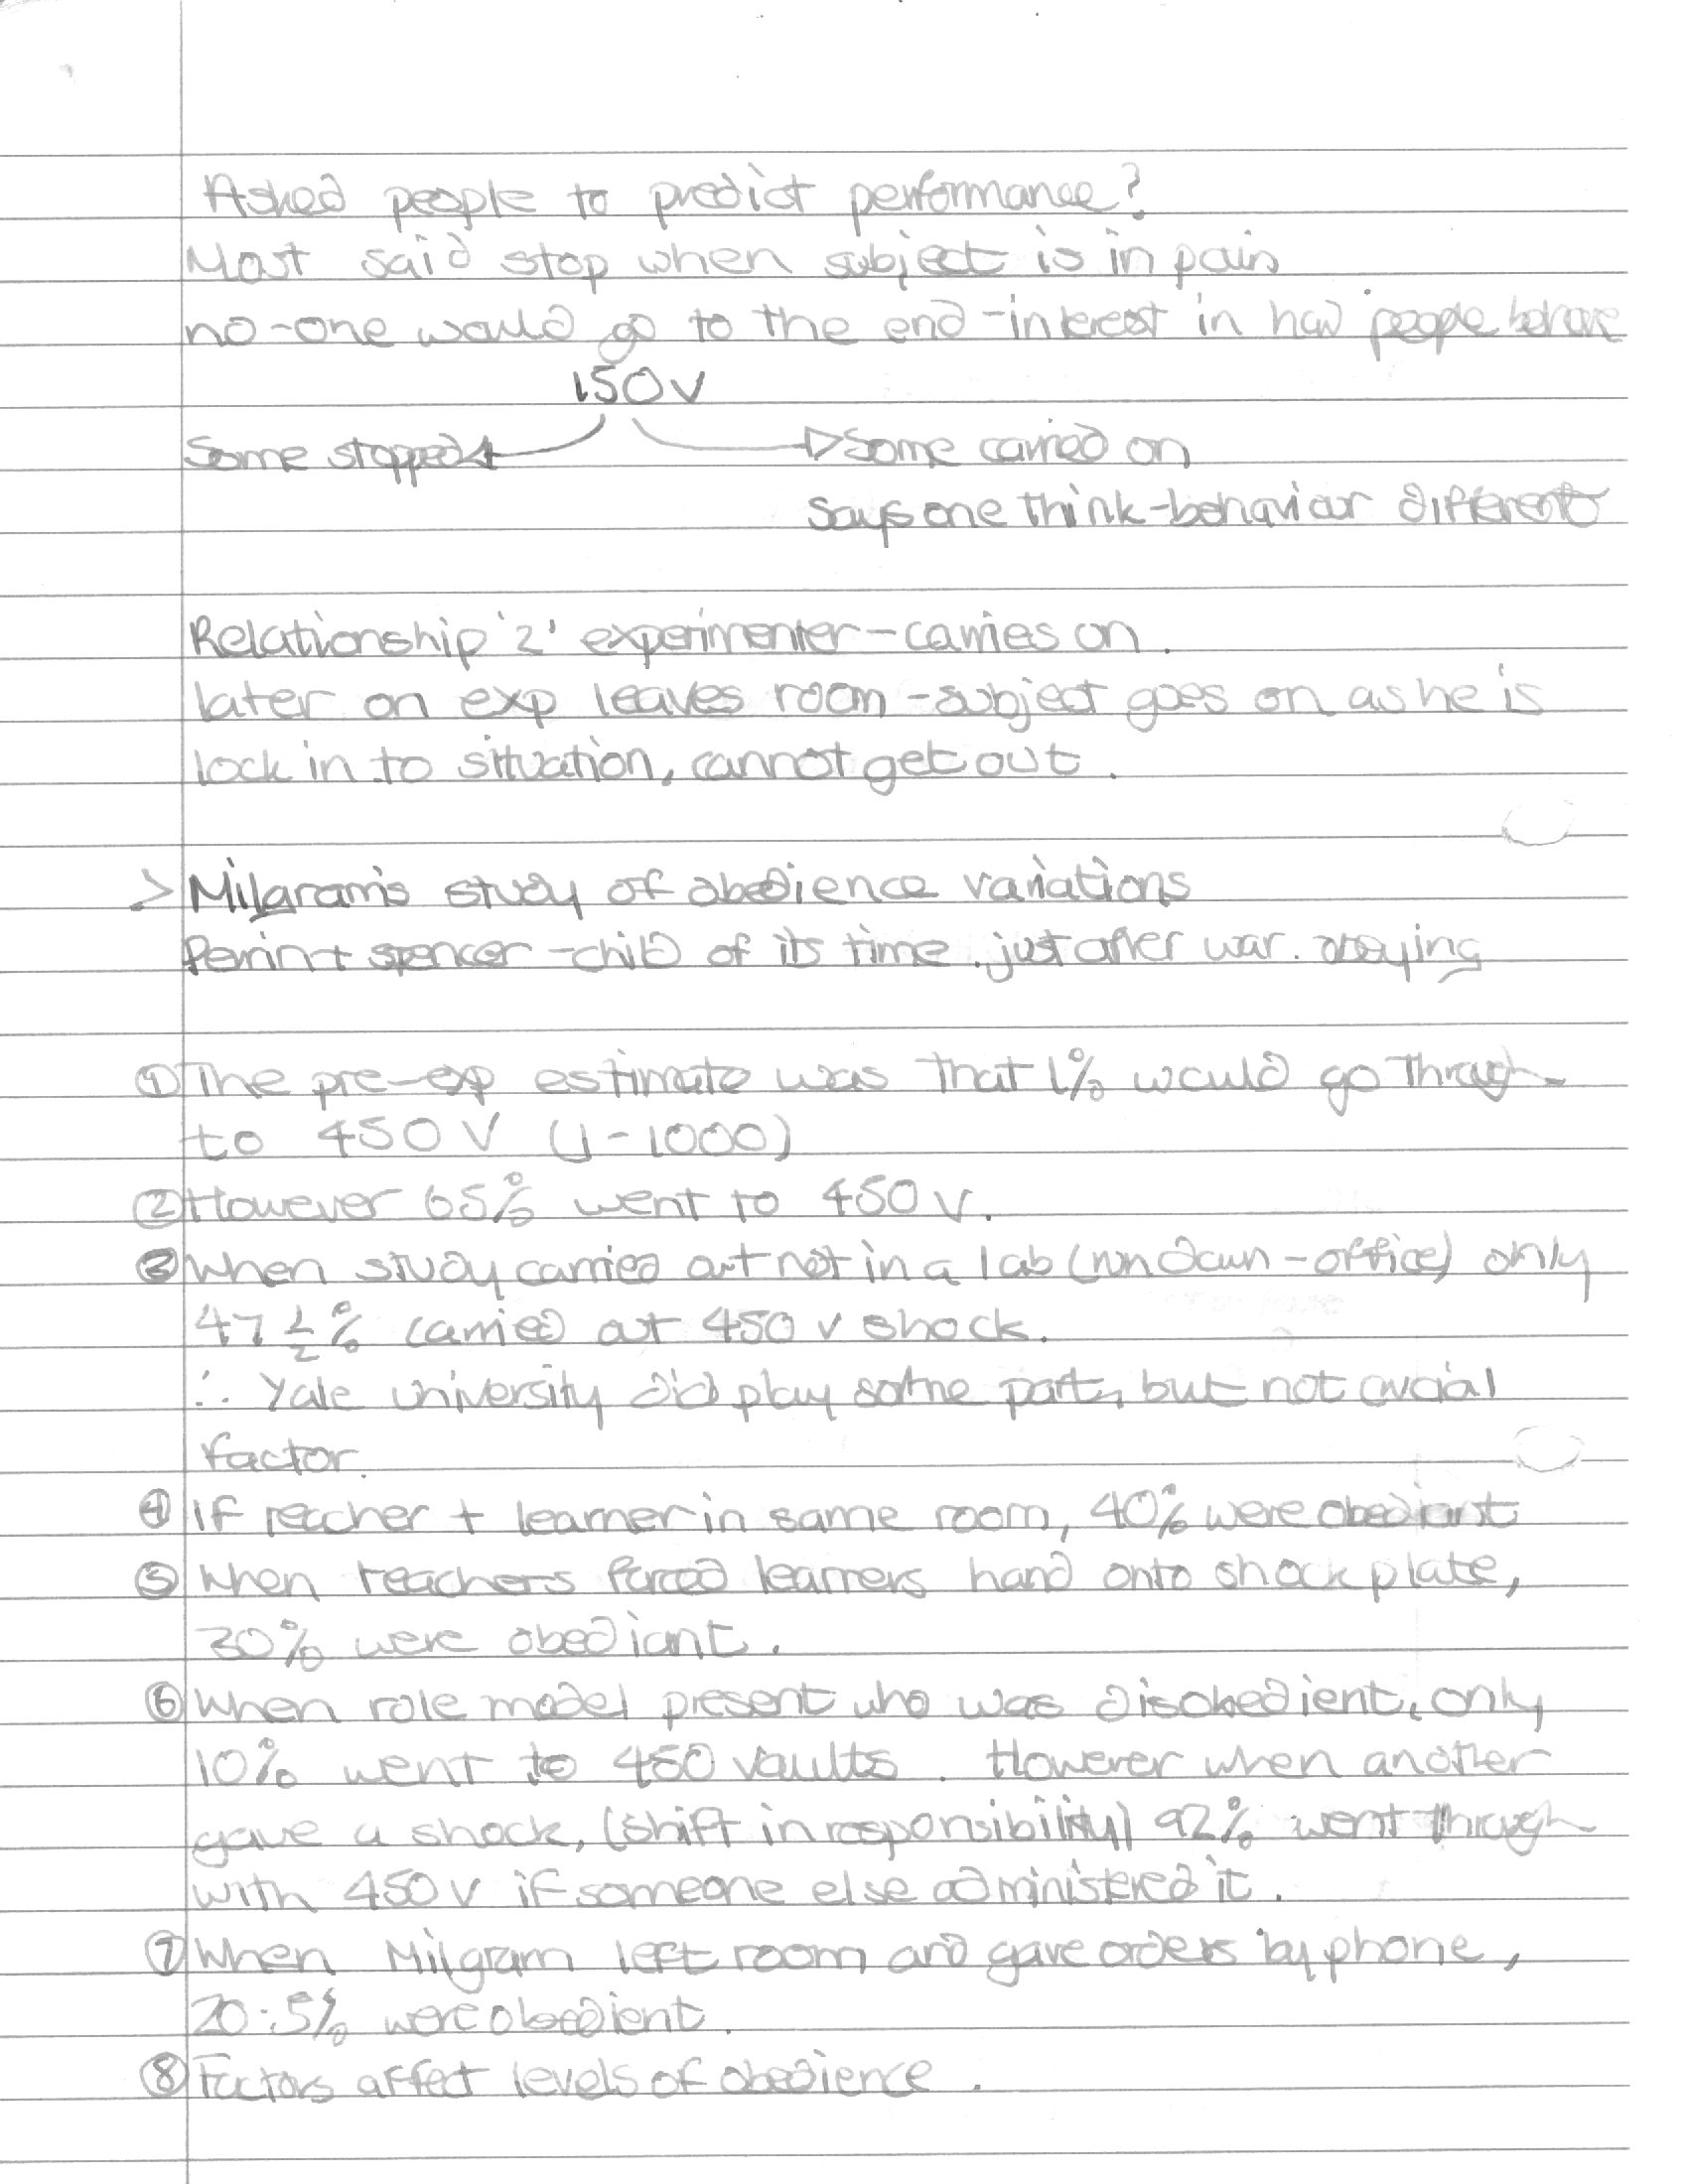 Asked people to predict performance?
Most said stop when subject is in pain
no-one would go to the end - interest in how people behave
150V
Some stopped Some carried on
Says one think - behaviour different
Relationship '2' experimenter - carries on.
later on exp leaves room - subject goes on as he is
lock in to situation, cannot get out.
> Milgram's study of obedience variations
Perrin + spencer - child of its time. just after war. obeying
① The pre-exp estimate was that 1% would go through
to 450V (1-1000)
② However 65% went to 450V.
③ When study carried out not in a lab (run down - office) only
47 1/2 % carried out 450 v shock.
∴ Yale university did play some part, but not crucial
factor.
④ If teacher + learner in same room, 40% were obediant
⑤ When teachers forced learners hand onto shock plate,
30% were obediant.
⑥ When role model present who was disobedient, only
10% went to 450 vaults. However when another
gave a shock, (shift in responsibility) 92% went through
with 450v if someone else administered it.
⑦ When Milgram left room and gave orders by phone,
20.5% were obedient.
⑧ Factors affect levels of obedience.